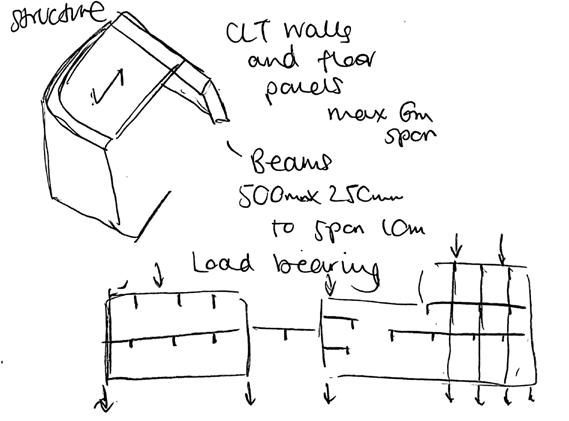 structure
CLT walls
and floor
panels
max 6m
span
Beams
500max 250mm
to span 10m
Load bearing